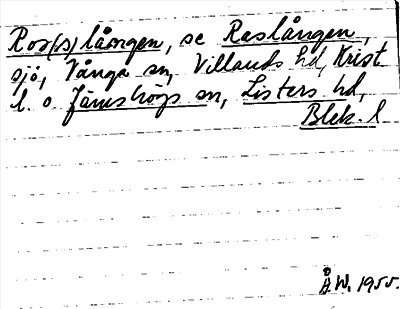 Ros(s)lången, se Raslången,
sjö, Vånga sn, Villands hd, Krist.
l. o. Jämshögs sn, Listers hd,
Blek. l
Å.W. 1955.